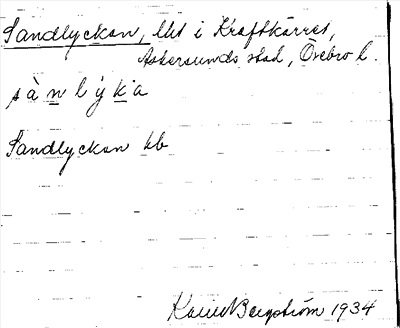 Sandlyckan, lht i Kraftkärret,
Askersunds stad, Örebro l.
sànlýka
Sandlyckan hb
Karin Bergström 1934